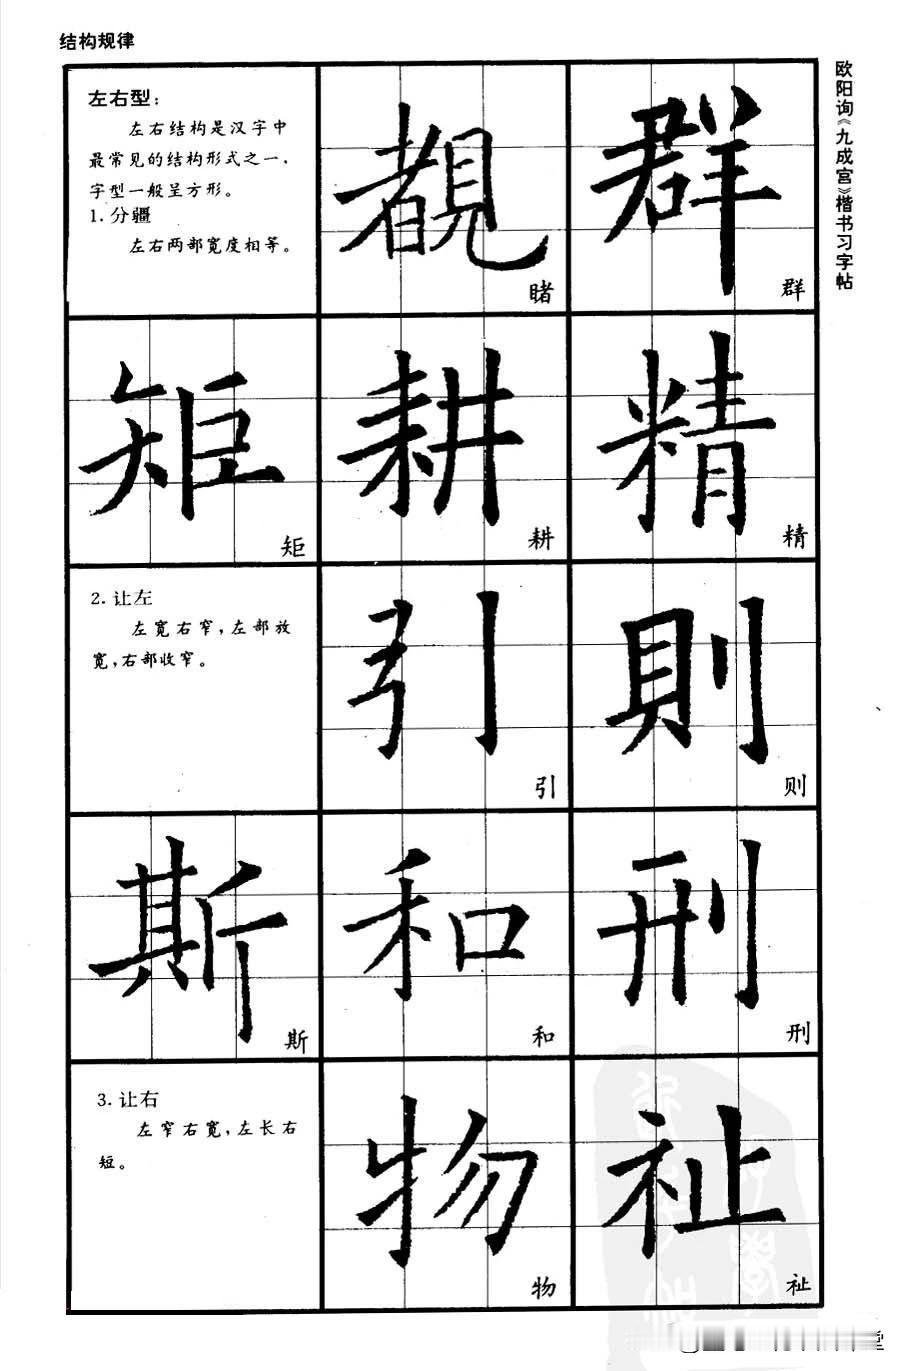 结构规律
欧阳询《九成宫》楷书习字帖
左右型：
左右结构是汉字中
最常见的结构形式之一，
字型一般呈方形。
1. 分疆
左右两部宽度相等。
覩
睹
群
群
矩
矩
耕
耕
精
精
2. 让左
左宽右窄，左部放
宽，右部收窄。
引
引
則
则
斯
斯
和
和
刑
刑
3. 让右
左窄右宽，左长右
短。
物
物
祉
祉